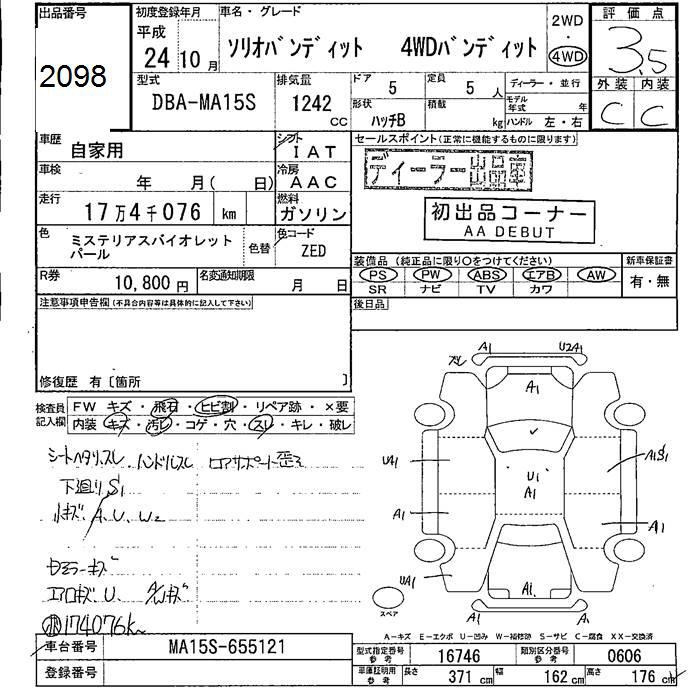 出品番号
2098
初度登録年月
平成
24 10月
車名・グレード
ソリオバンディット 4WDバンディット
2WD
・
4WD
評価点
3.5
外装 内装
C C
型式
DBA-MA15S
排気量
1242 CC
ドア
5
定員
5 人
形状
ハッチB
積載
kg
ディーラー・並行
モデル年式 年
ハンドル 左・右
車歴
自家用
シフト
IAT
車検
年 月( 日)
冷房
AAC
走行
17万4千076 km
燃料
ガソリン
色
ミステリアスバイオレット
パール
色替
色コード
ZED
R券
10,800円
名変通知期限
月 日
セールスポイント(正常に機能するものに限ります)
ディーラー出品車
初出品コーナー
AA DEBUT
装備品(純正品に限り○をつけてください)
PS PW ABS エアB AW
SR ナビ TV カワ
新車保証書
有・無
後日品
注意事項申告欄(不具合内容等は具体的に記入して下さい)
修復歴 有[箇所 ]
検査員
記入欄
FW キズ・飛石・ヒビ割・リペア跡・×要
内装・キズ・汚レ・コゲ・穴・スレ・キレ・破レ
シートヘタリスレ ハンドルスレ
下廻りS1
小キズ A、U、W2
エアロキズU.
174076K
車台番号
MA15S-655121
登録番号
A1 U2A1
スレ
A1
UA1
U1
A1
A1S1
A1
A1
UA1
A1
A1 A1
スペア
A-キズ E-エクボ U-凹み W-補修跡 S-サビ C-腐食 XX-交換済
型式指定番号
参考
16746
類別区分番号
参考
0606
車庫証明用
参考
長さ
371 cm
幅
162 cm
高さ
176 cm